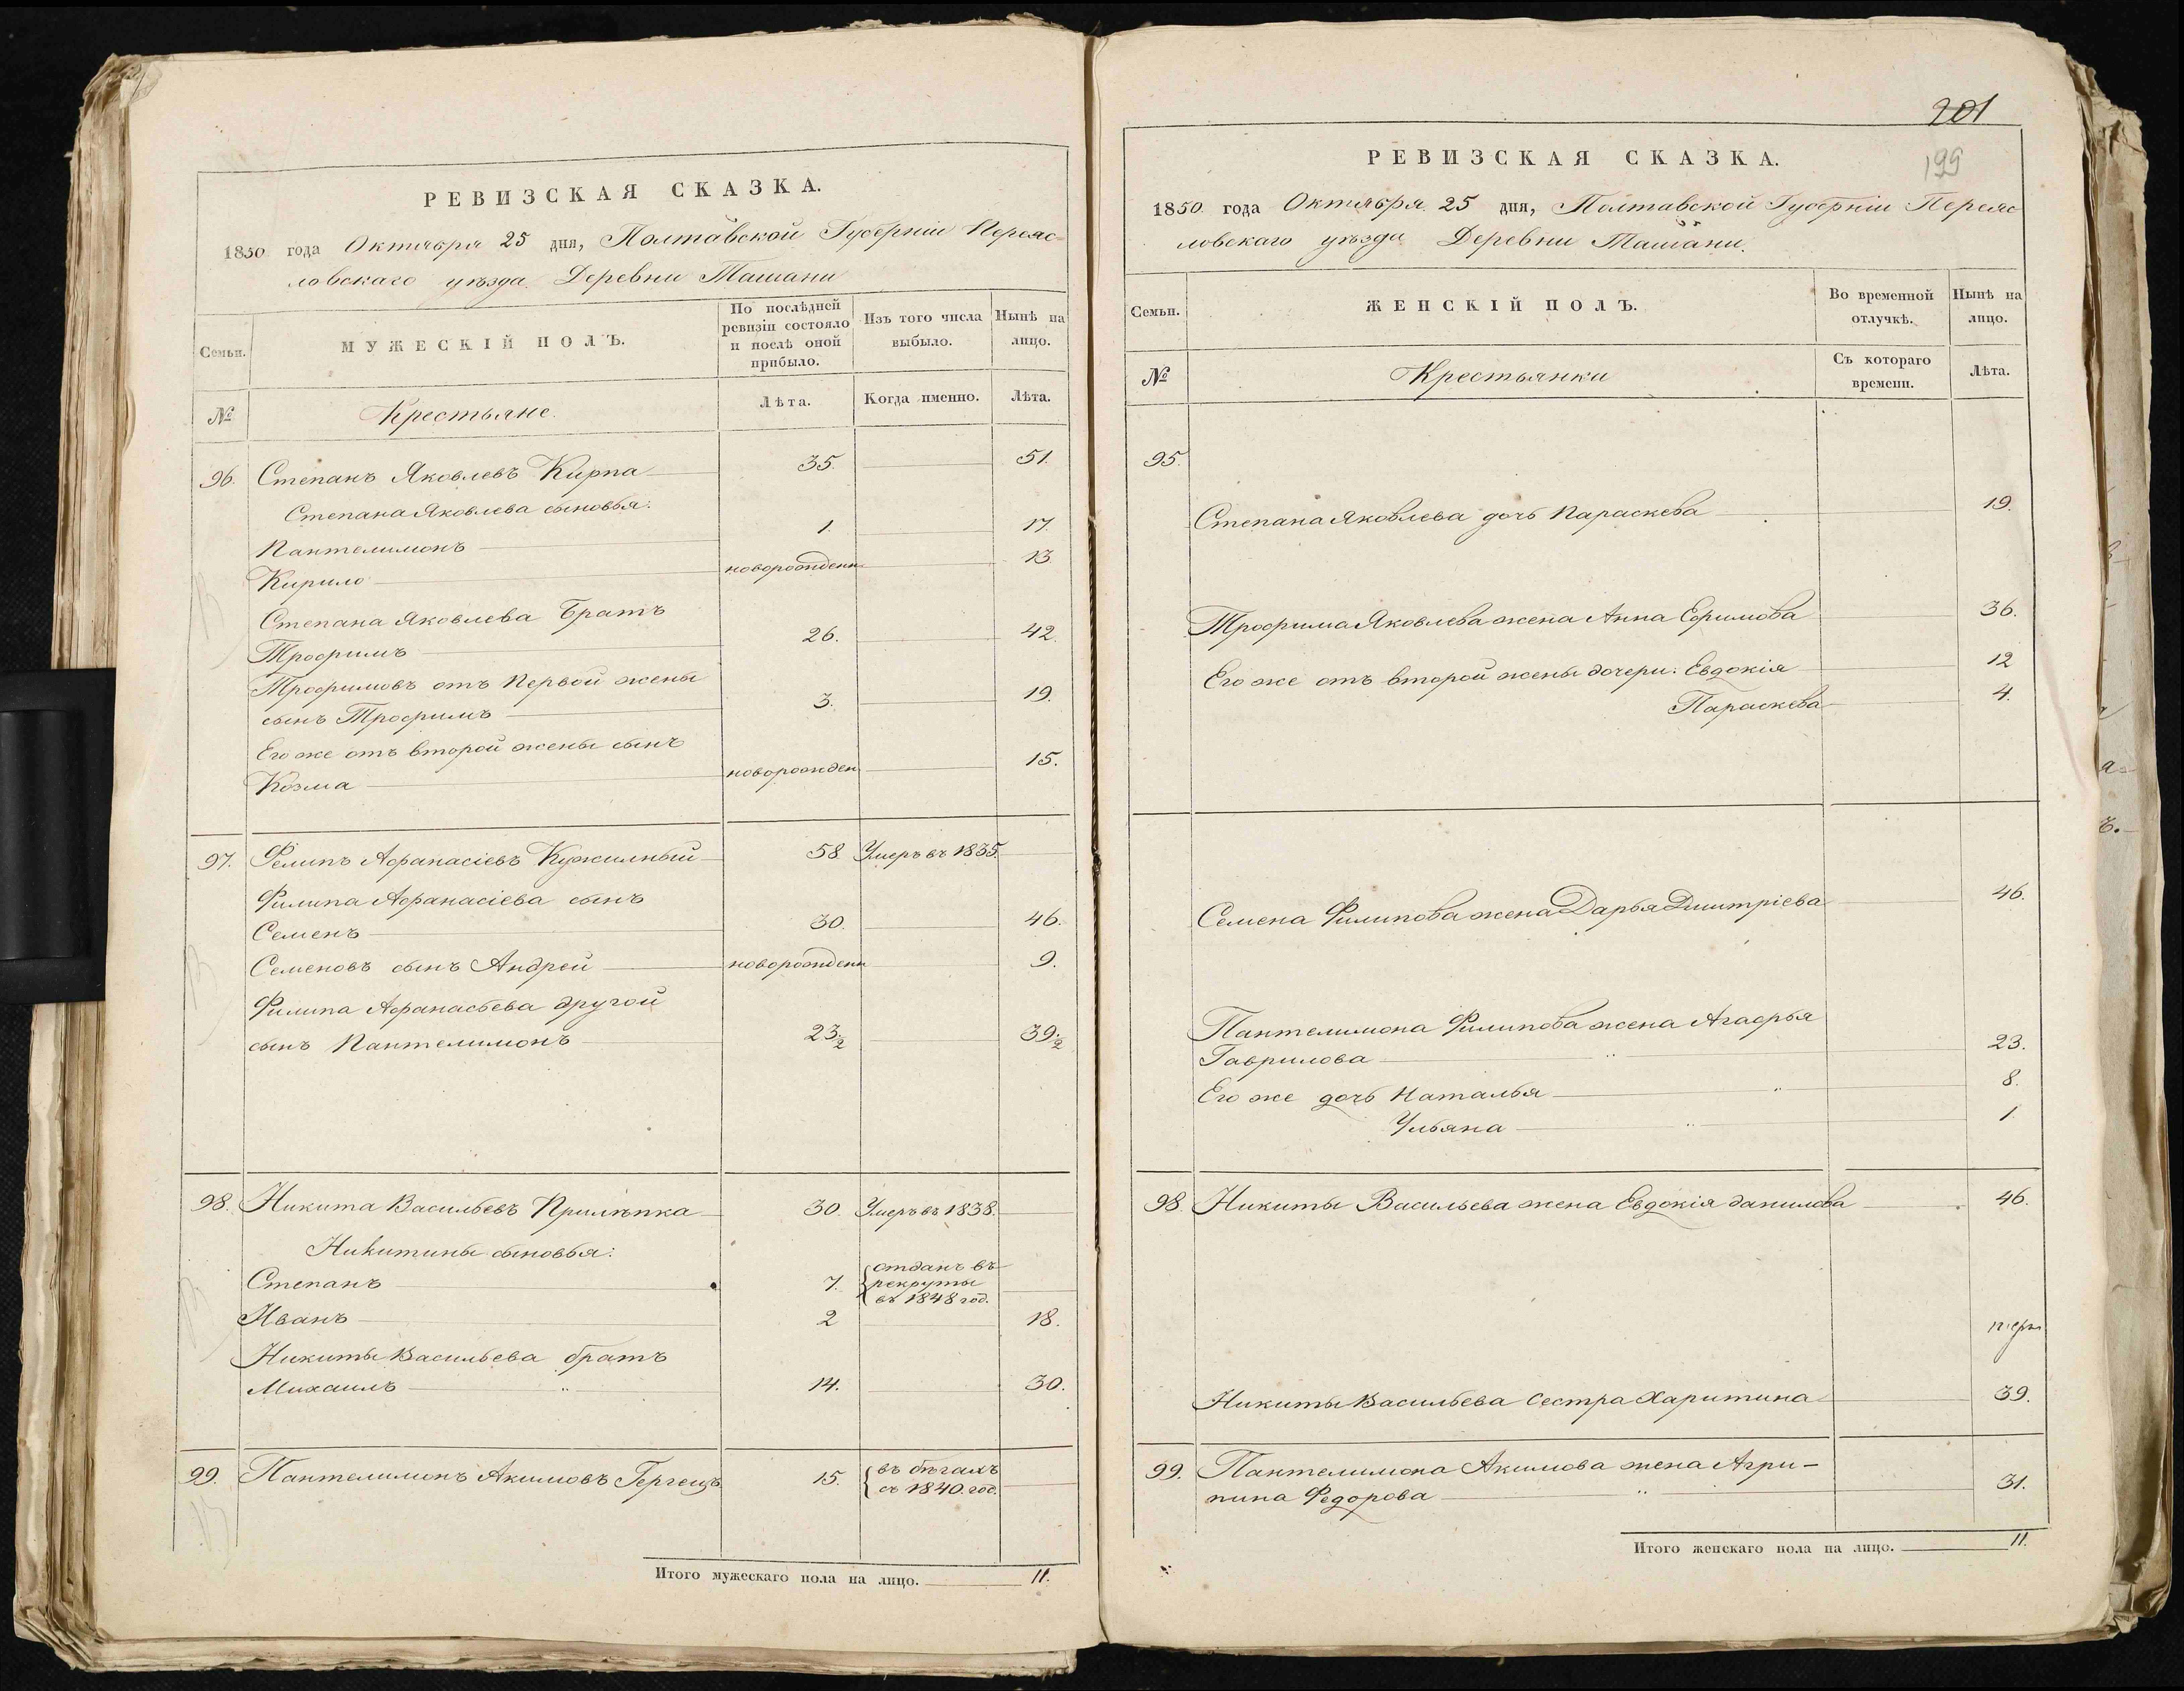 РЕВИЗСКАЯ СКАЗКА.
1850 года Октября 25 дня, Полтавской Губерніи Переяс-
ловскаго уѣзда Деревни Ташани
Семьи.
МУЖЕСКІЙ ПОЛЪ.
По послѣдней
ревизіи состояло
и послѣ оной
прибыло.
Изъ того числа
выбыло.
Нынѣ на
лицо.
№
Крестьяне.
Лѣта.
Когда именно.
Лѣта.
96. Степанъ Яковлевъ Кирпа 35. 51.
Степана Яковлева сыновья:
Пантелимонъ 1. 17.
Кирило новорожденн 13
Степана Яковлева Братъ
Трофимъ 26. 42.
Трофимовъ отъ Первой жены
сынъ Трофимъ 3. 19.
Его же отъ второй жены сынъ
Козма новорожден 15.
97. Фелипъ Афанасіевъ Кужильный 58 Умеръ въ 1835.
Филипа Афанасіева сынъ
Семенъ 30. 46.
Семеновъ сынъ Андрей новорожденн 9.
Филипа Афанасьева другой
сынъ Пантелимонъ 23½ 39½
98. Никита Васильевъ Прилѣпка 30. Умеръ въ 1838.
Никитины сыновья:
Степанъ 7. отданъ въ
рекруты
въ 1848 год.
Иванъ 2 18.
Никиты Васильева братъ
Михаилъ 14. 30.
99. Пантелимонъ Акимовъ Гергецъ 15. въ бѣгахъ
съ 1840. год.
Итого мужескаго пола на лицо. 11.
201
199
РЕВИЗСКАЯ СКАЗКА.
1850 года Октября 25 дня, Полтавской Губерніи Переяс
ловскаго уѣзда Деревни Ташани.
Семьи.
ЖЕНСКІЙ ПОЛЪ.
Во временной
отлучкѣ.
Нынѣ на
лицо.
№
Крестьянки
Съ котораго
времени.
Лѣта.
95.
Степана Яковлева дочь Параскева 19.
Трофима Яковлева жена Анна Ефимова 36.
Его же отъ второй жены дочери: Евдокія 12
Параскева 4.
Семена Филипова жена Дарья Дмитріева 46.
Пантелимона Филипова жена Агафья
Гаврилова 23.
Его же дочь Наталья 8.
Ульяна 1.
98. Никиты Васильева жена Евдокія данилова 46.
Никиты Васильева Сестра Харитина 39.
99. Пантелимона Акимова жена Агри-
пина Федорова 31.
Итого женскаго пола на лицо. 11.